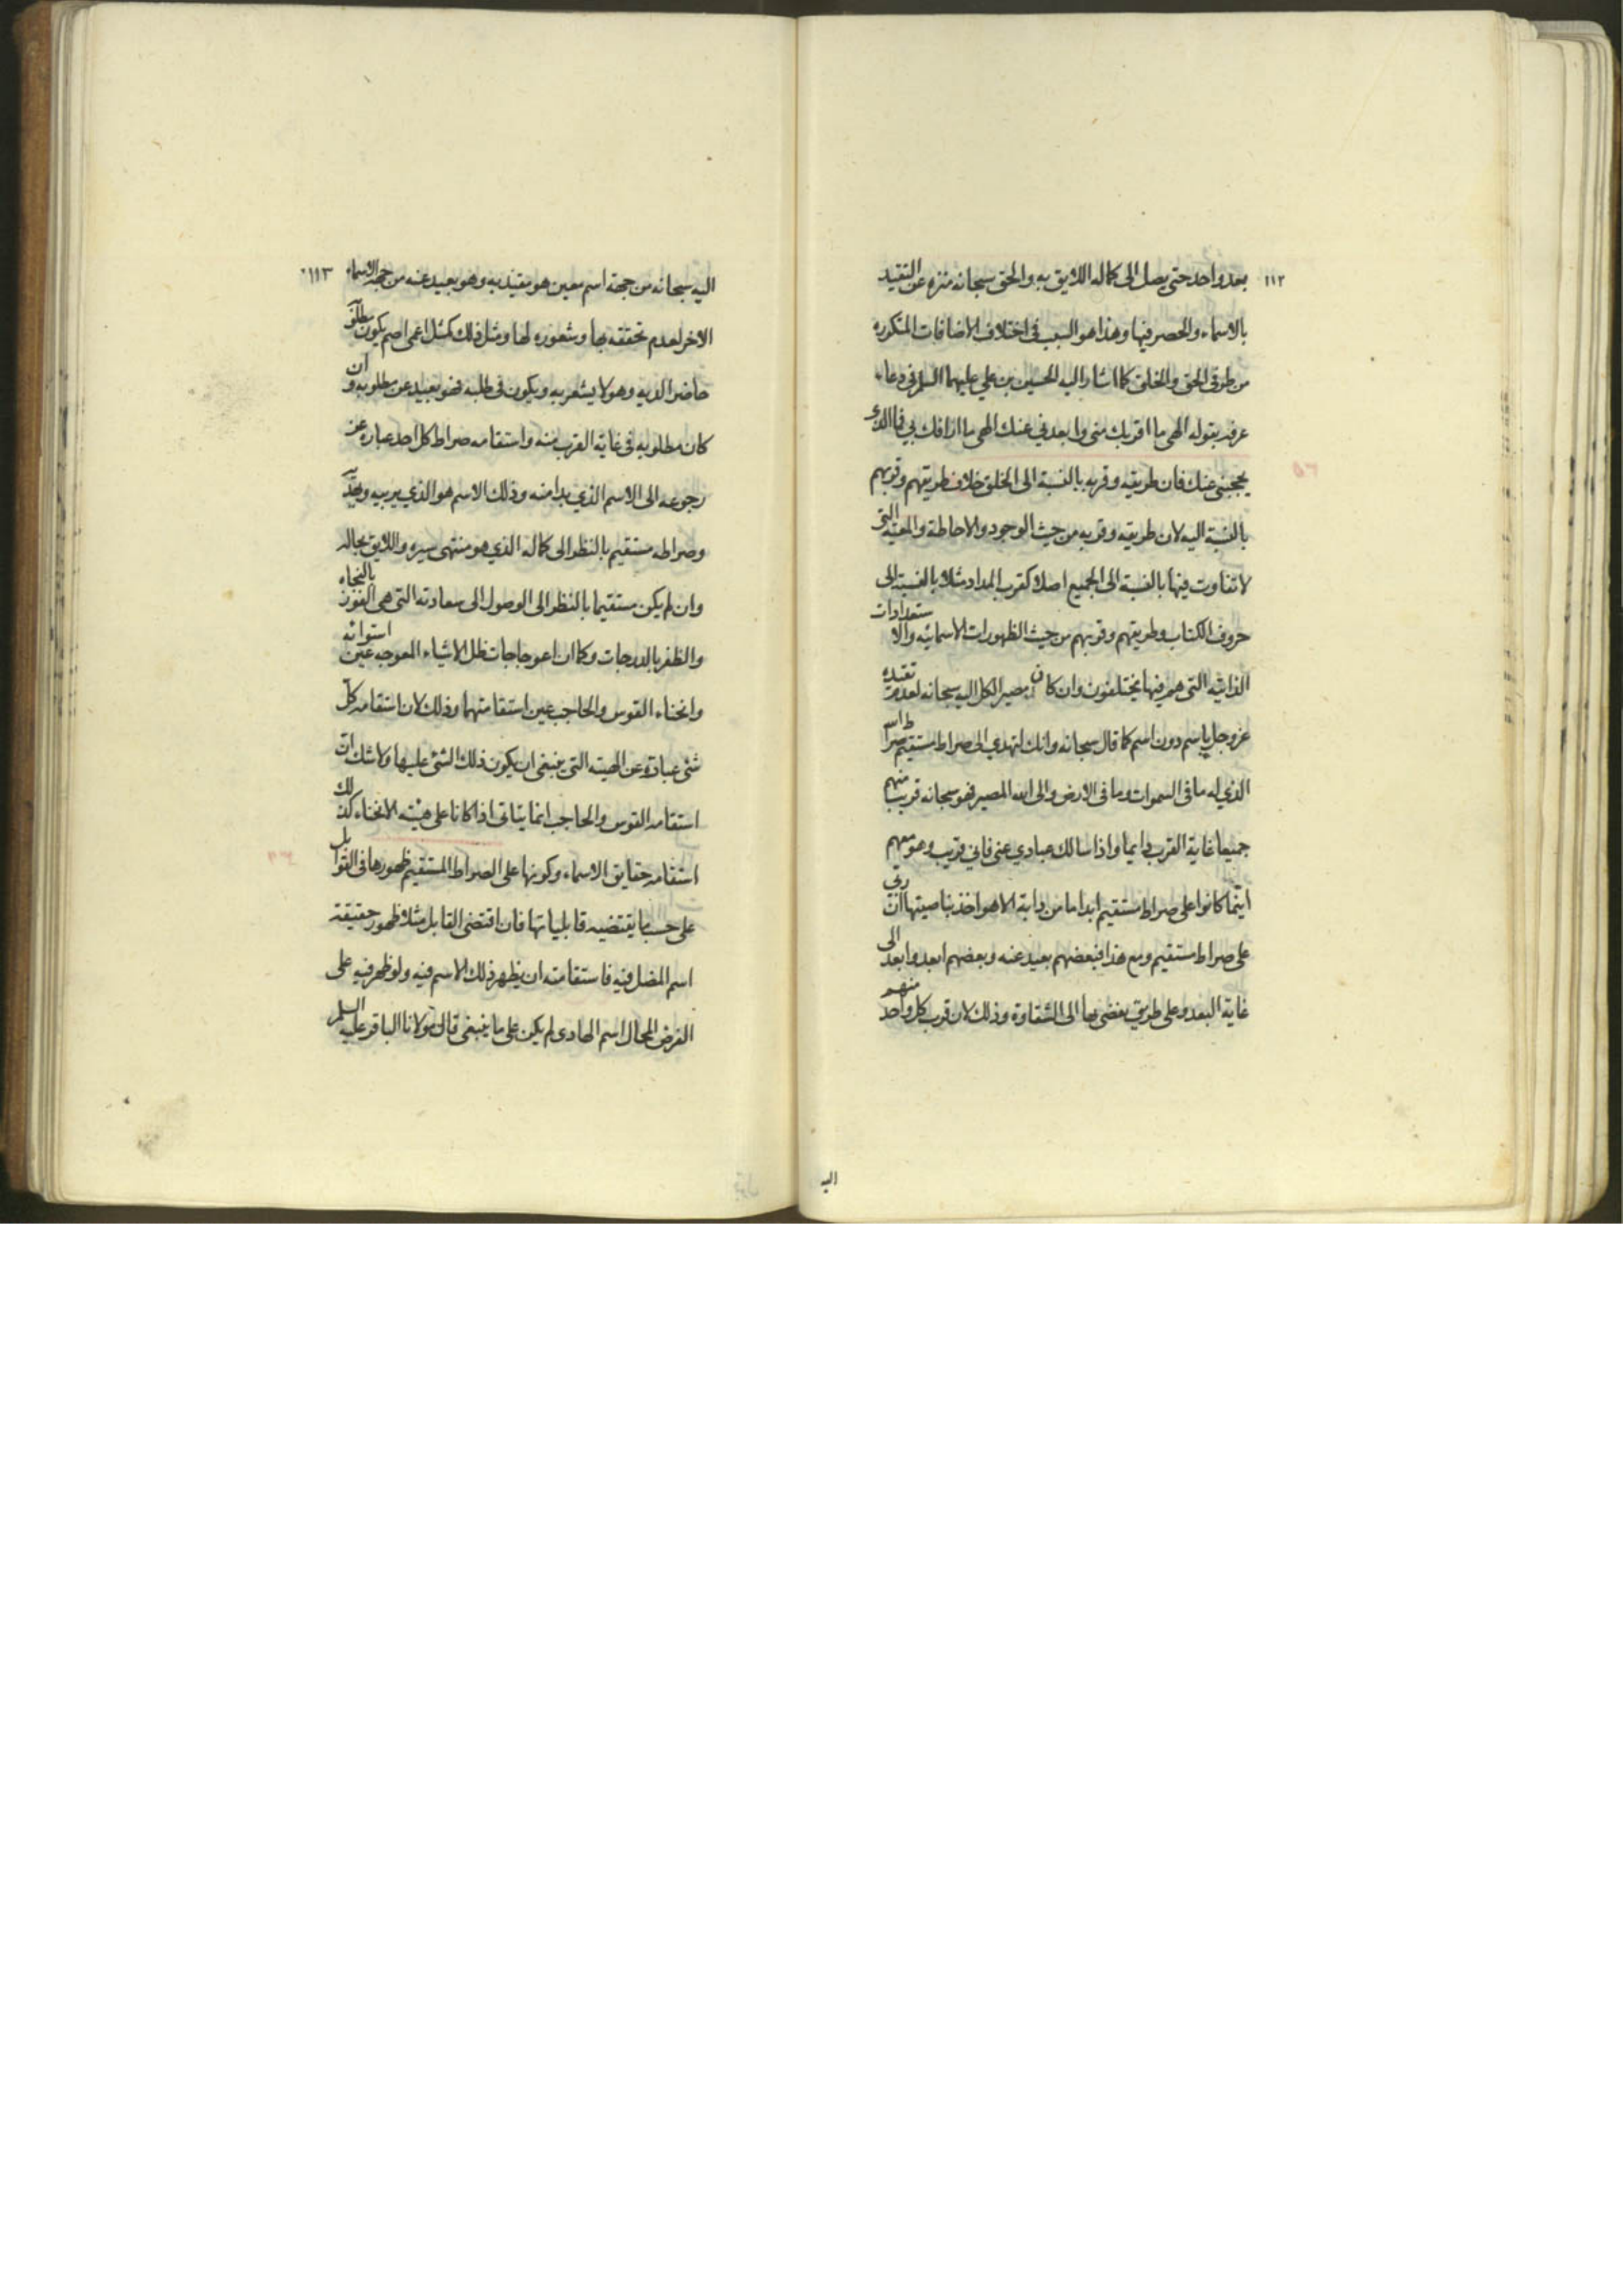 ١١٢
بعد واحد حتى يصل الى كماله اللايق به والحق سبحانه منزه عن التقيد
بالاسماء والحصر فيها وهذا هو السبب فى اختلاف الاضافات المتكرره
من طرفى الحق والخلق كما اشار اليه الحسين بن علي عليهما السلم فى دعاء
عرفه بقوله الهى ما اقربك منى وابعدني عنك الهى ما ارافك بي فما الذي
يحجبنى عنك فان طريقه وقربه بالنسبة الى الخلق خلاف طريقهم وقربهم
بالنسبة اليه لان طريقه وقربه من حيث الوجود والاحاطة والمعيه التى
لا تفاوت فيها بالنسبة الى الجميع اصلا كقرب المداد مثلا بالنسبة الى
حروف الكتاب وطريقهم وقربهم من حيث الظهورات الاسمائيه والاستعدادات
الذاتيه التى هم فيها يختلفون وان كان مصير الكل اليه سبحانه لعدم تقيده
عز وجل باسم دون اسم كما قال سبحانه وانك لتهدي الى صراط مستقيم صراط الله
الذي له ما فى السموات وما فى الارض والى الله المصير فهو سبحانه قريب منهم
جميعا غاية القرب دايما واذا سالك عبادي عنى فانى قريب وهو معهم
اينما كانوا على صراط مستقيم ابدا ما من دابة الا هو اخذ بناصيتها ان ربى
على صراط مستقيم ومع هذا فبعضهم بعيد عنه وبعضهم ابعد وابعد الى
غاية البعد وعلى طريق يفضى بها الى الشقاوة وذلك لان قرب كل واحد منهم
اليه
١١٣
اليه سبحانه من جهة اسم معين هو مقيد به وهو بعيد عنه من جهة الاسماء
الاخر لعدم تحققه بها وشعوره لها ومثل ذلك كمثل اعمى اصم يكون مطلوبه
حاضرا لديه وهو لا يشعر به ويكون فى طلبه فهو بعيد عن مطلوبه وان
كان مطلوبه فى غاية القرب منه واستقامه صراط كل احد عباره عن
رجوعه الى الاسم الذي بدا منه وذلك الاسم هو الذي يربيه ويهديه
وصراطه مستقيم بالنظر الى كماله الذي هو منتهى سيره واللايق بحاله
وان لم يكن مستقيما بالنظر الى الوصول الى سعادته التى هى الفوز بالنجاه
والظفر بالدرجات وكما ان اعوجاجات ظل الاشياء المعوجه عين استوائه
وانحناء القوس والحاجب عين استقامتهما وذلك لان استقامه كل
شئ عبارة عن الهيئه التى ينبغى ان يكون ذلك الشئ عليها ولا شك ان
استقامه القوس والحاجب انما يتاتى اذا كانا على هيئته الانحناء كذلك
استقامه حقايق الاسماء وكونها على الصراط المستقيم ظهورها فى القوابل
على حسب ما يقتضيه قابلياتها فان اقتضى القابل مثلا ظهور حقيقة
اسم المضل فيه فاستقامته ان يظهر ذلك الاسم فيه ولو ظهر فيه على
الفرض المحال اسم الهادى لم يكن على ما ينبغى قال مولانا الباقر عليه السلم